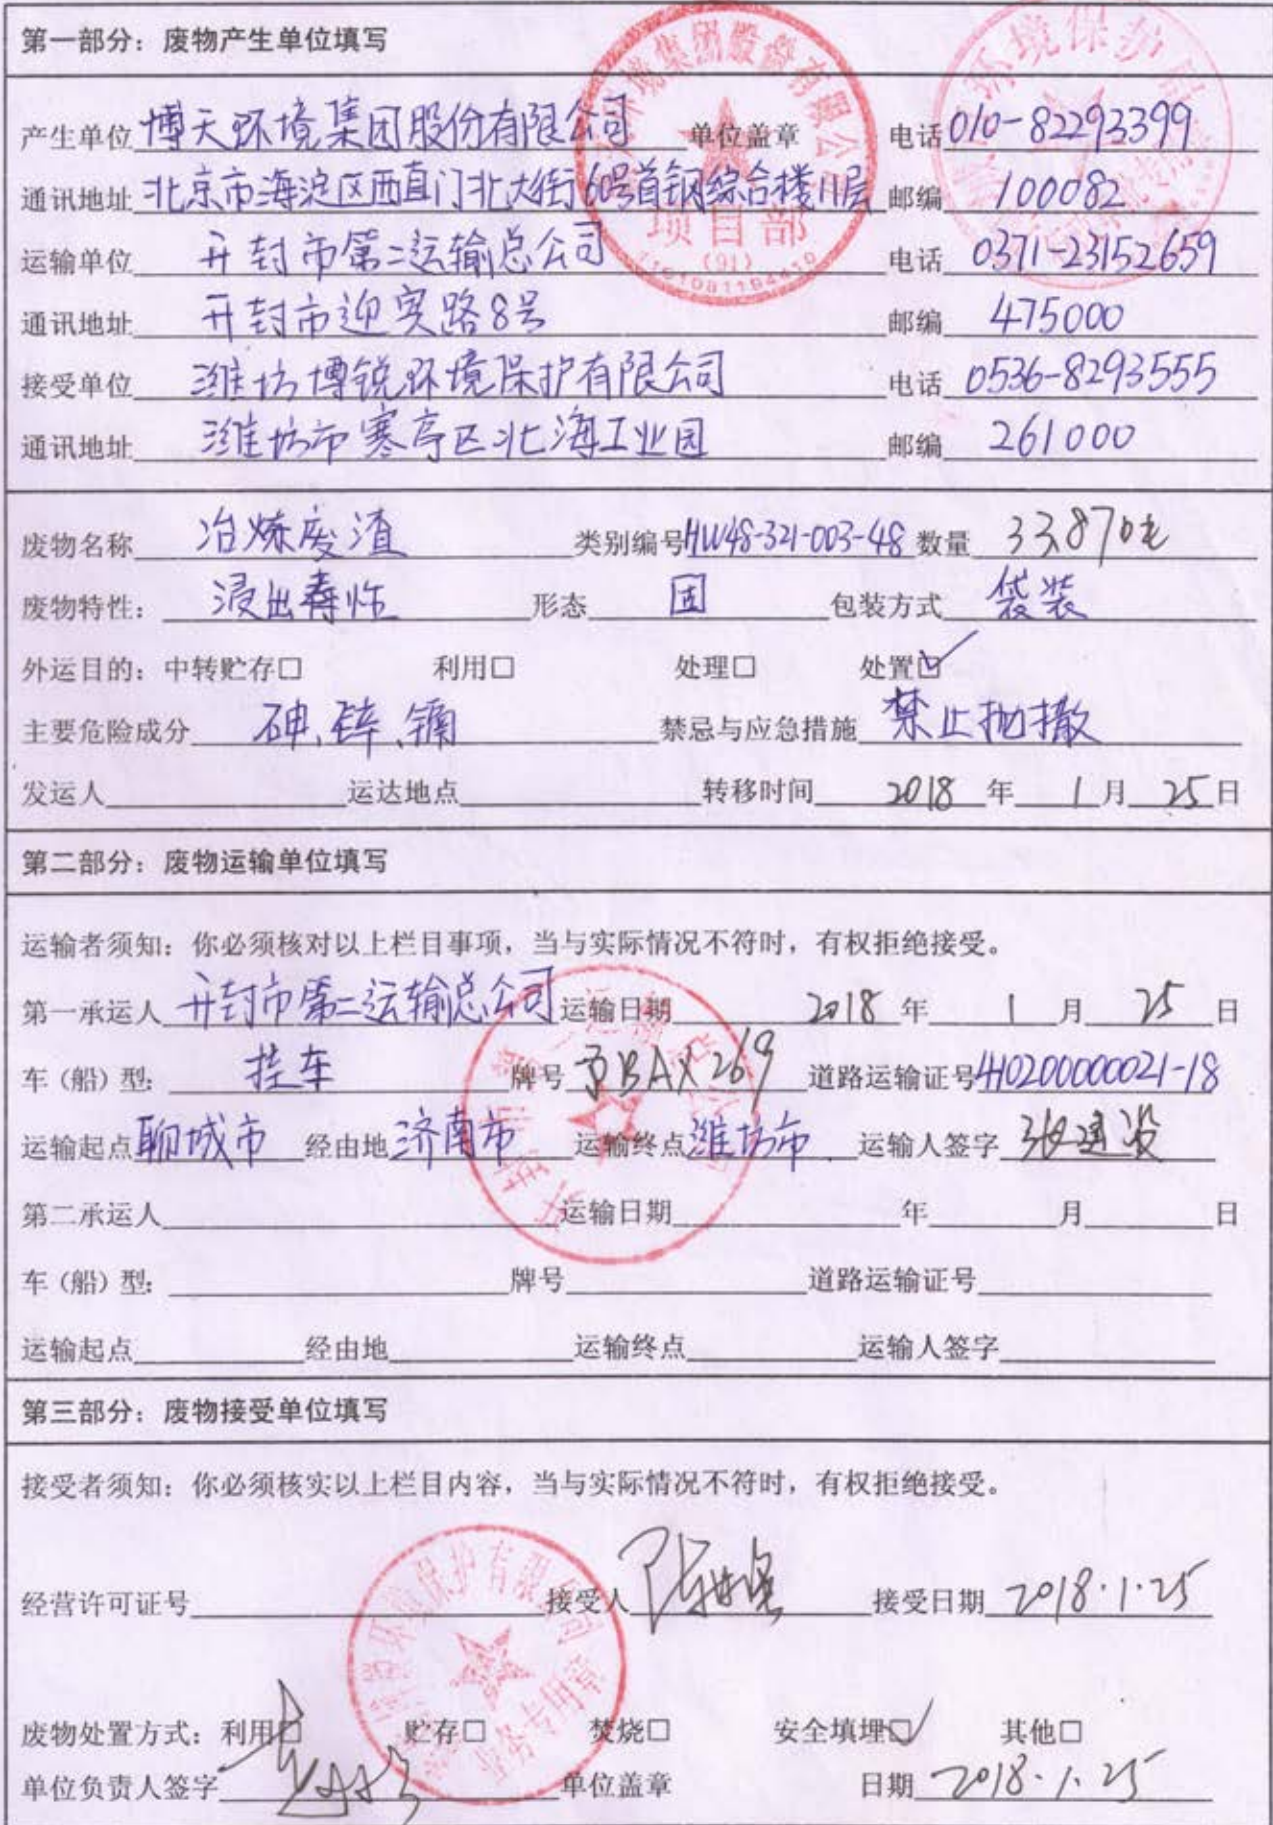 第一部分：废物产生单位填写
产生单位 博天环境集团股份有限公司 单位盖章 电话 010-82293399
通讯地址 北京市海淀区西直门北大街60号首钢综合楼11层 邮编 100082
运输单位 开封市第二运输总公司 电话 0371-23152659
通讯地址 开封市迎宾路8号 邮编 475000
接受单位 潍坊博锐环境保护有限公司 电话 0536-8293555
通讯地址 潍坊市寒亭区北海工业园 邮编 261000
环境集团股份有限公司
项目部
(91)
环境保护局
废物名称 冶炼废渣 类别编号 HW48-321-003-48 数量 33.870
废物特性： 浸出毒性 形态 固 包装方式 袋装
外运目的：中转贮存□ 利用□ 处理□ 处置☑
主要危险成分 砷、锌、镉 禁忌与应急措施 禁止抛撒
发运人 运达地点 转移时间 2018 年 1 月 25 日
第二部分：废物运输单位填写
运输者须知：你必须核对以上栏目事项，当与实际情况不符时，有权拒绝接受。
第一承运人 开封市第二运输总公司 运输日期 2018 年 1 月 25 日
车（船）型: 挂车 牌号 BAX269 道路运输证号 410200000021-18
运输起点 聊城市 经由地 济南市 运输终点 潍坊市 运输人签字 张建设
第二承运人 运输日期 年 月 日
车（船）型: 牌号 道路运输证号
运输起点 经由地 运输终点 运输人签字
第三部分：废物接受单位填写
接受者须知：你必须核实以上栏目内容，当与实际情况不符时，有权拒绝接受。
经营许可证号 接受人 接受日期 2018.1.25
环境保护有限公司
业务专用章
废物处置方式：利用□ 贮存□ 焚烧□ 安全填埋☑ 其他□
单位负责人签字 单位盖章 日期 2018.1.25